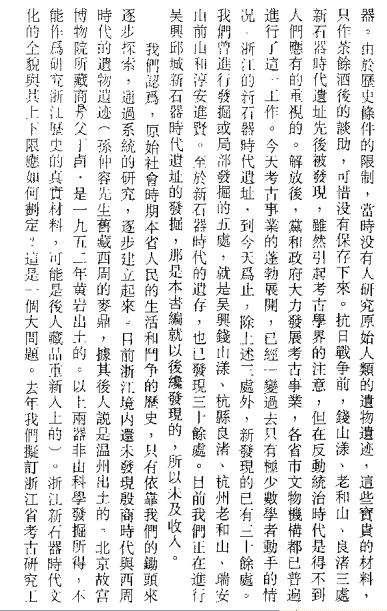 器。由於歷史條件的限制，當時没有人研究原始人類的遺物遺迹，這些寶貴的材料，
只作茶餘酒後的談助，可惜没有保存下來。抗日戰争前，錢山漾、老和山、良渚三處
新石器時代遺址先後被發現，雖然引起考古學界的注意，但在反動統治時代是得不到
人們應有的重視的。解放後，黨和政府大力發展考古事業，各省市文物機構都已普遍
進行了這一工作。今天考古事業的蓬勃展開，已經一變過去只有極少數學者動手的情
况。浙江的新石器時代遺址，到今天爲止，除上述三處外，新發現的已有二十餘處。
我們曾進行發掘或局部發掘的五處，就是吴興錢山漾、杭縣良渚、杭州老和山、瑞安
山前山和淳安進賢。至於新石器時代的遺存，也已發現三十餘處。目前我們正在進行
吴興邱城新石器時代遺址的發掘，那是本書編就以後纔發現的，所以未及收入。
我們認爲，原始社會時期本省人民的生活和鬥争的歷史，只有依靠我們的鋤頭來
逐步探索，通過系統的研究，逐步建立起來。目前浙江境内還未發現殷商時代與西周
時代的遺物遺迹（孫仲容先生舊藏西周的麥鼎，據其後人說是温州出土的。北京故宫
博物院所藏商㫃父丁卣，是一九五二年黄岩出土的。以上兩器非由科學發掘所得，不
能作爲研究浙江歷史的真實材料，可能是後人藏品重新入土的）。浙江新石器時代文
化的全貌與其上下限應如何劃定？這是一個大問題。去年我們擬訂浙江省考古研究工